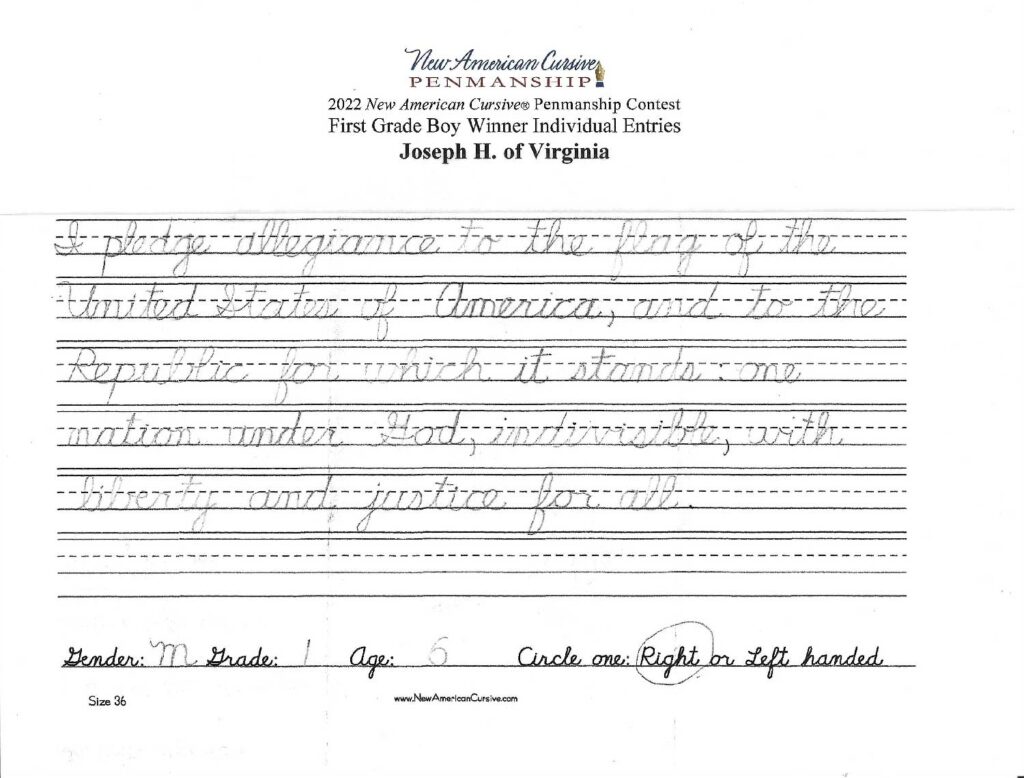 New American Cursive
PENMANSHIP
2022 New American Cursive® Penmanship Contest
First Grade Boy Winner Individual Entries
Joseph H. of Virginia
I pledge allegiance to the flag of the
United States of America, and to the
Republic for which it stands: one
nation under God, indivisible, with
liberty and justice for all.
Gender: M Grade: 1 Age: 6 Circle one: Right or Left handed
Size 36 www.NewAmericanCursive.com